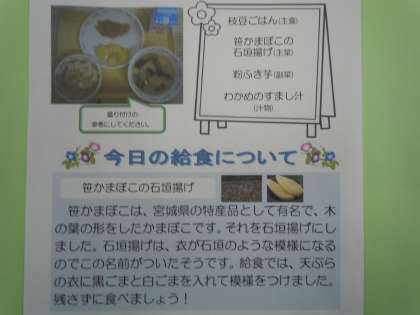 枝豆ごはん(主食)
笹かまぼこの
石垣揚げ(主菜)
粉ふき芋(副菜)
わかめのすまし汁
(汁物)
盛り付けの
参考にしてください。
今日の給食について
笹かまぼこの石垣揚げ
笹かまぼこは、宮城県の特産品として有名で、木
の葉の形をしたかまぼこです。それを石垣揚げに
しました。石垣揚げは、衣が石垣のような模様になる
のでこの名前がついたそうです。給食では、天ぷら
の衣に黒ごまと白ごまを入れて模様をつけました。
残さずに食べましょう！